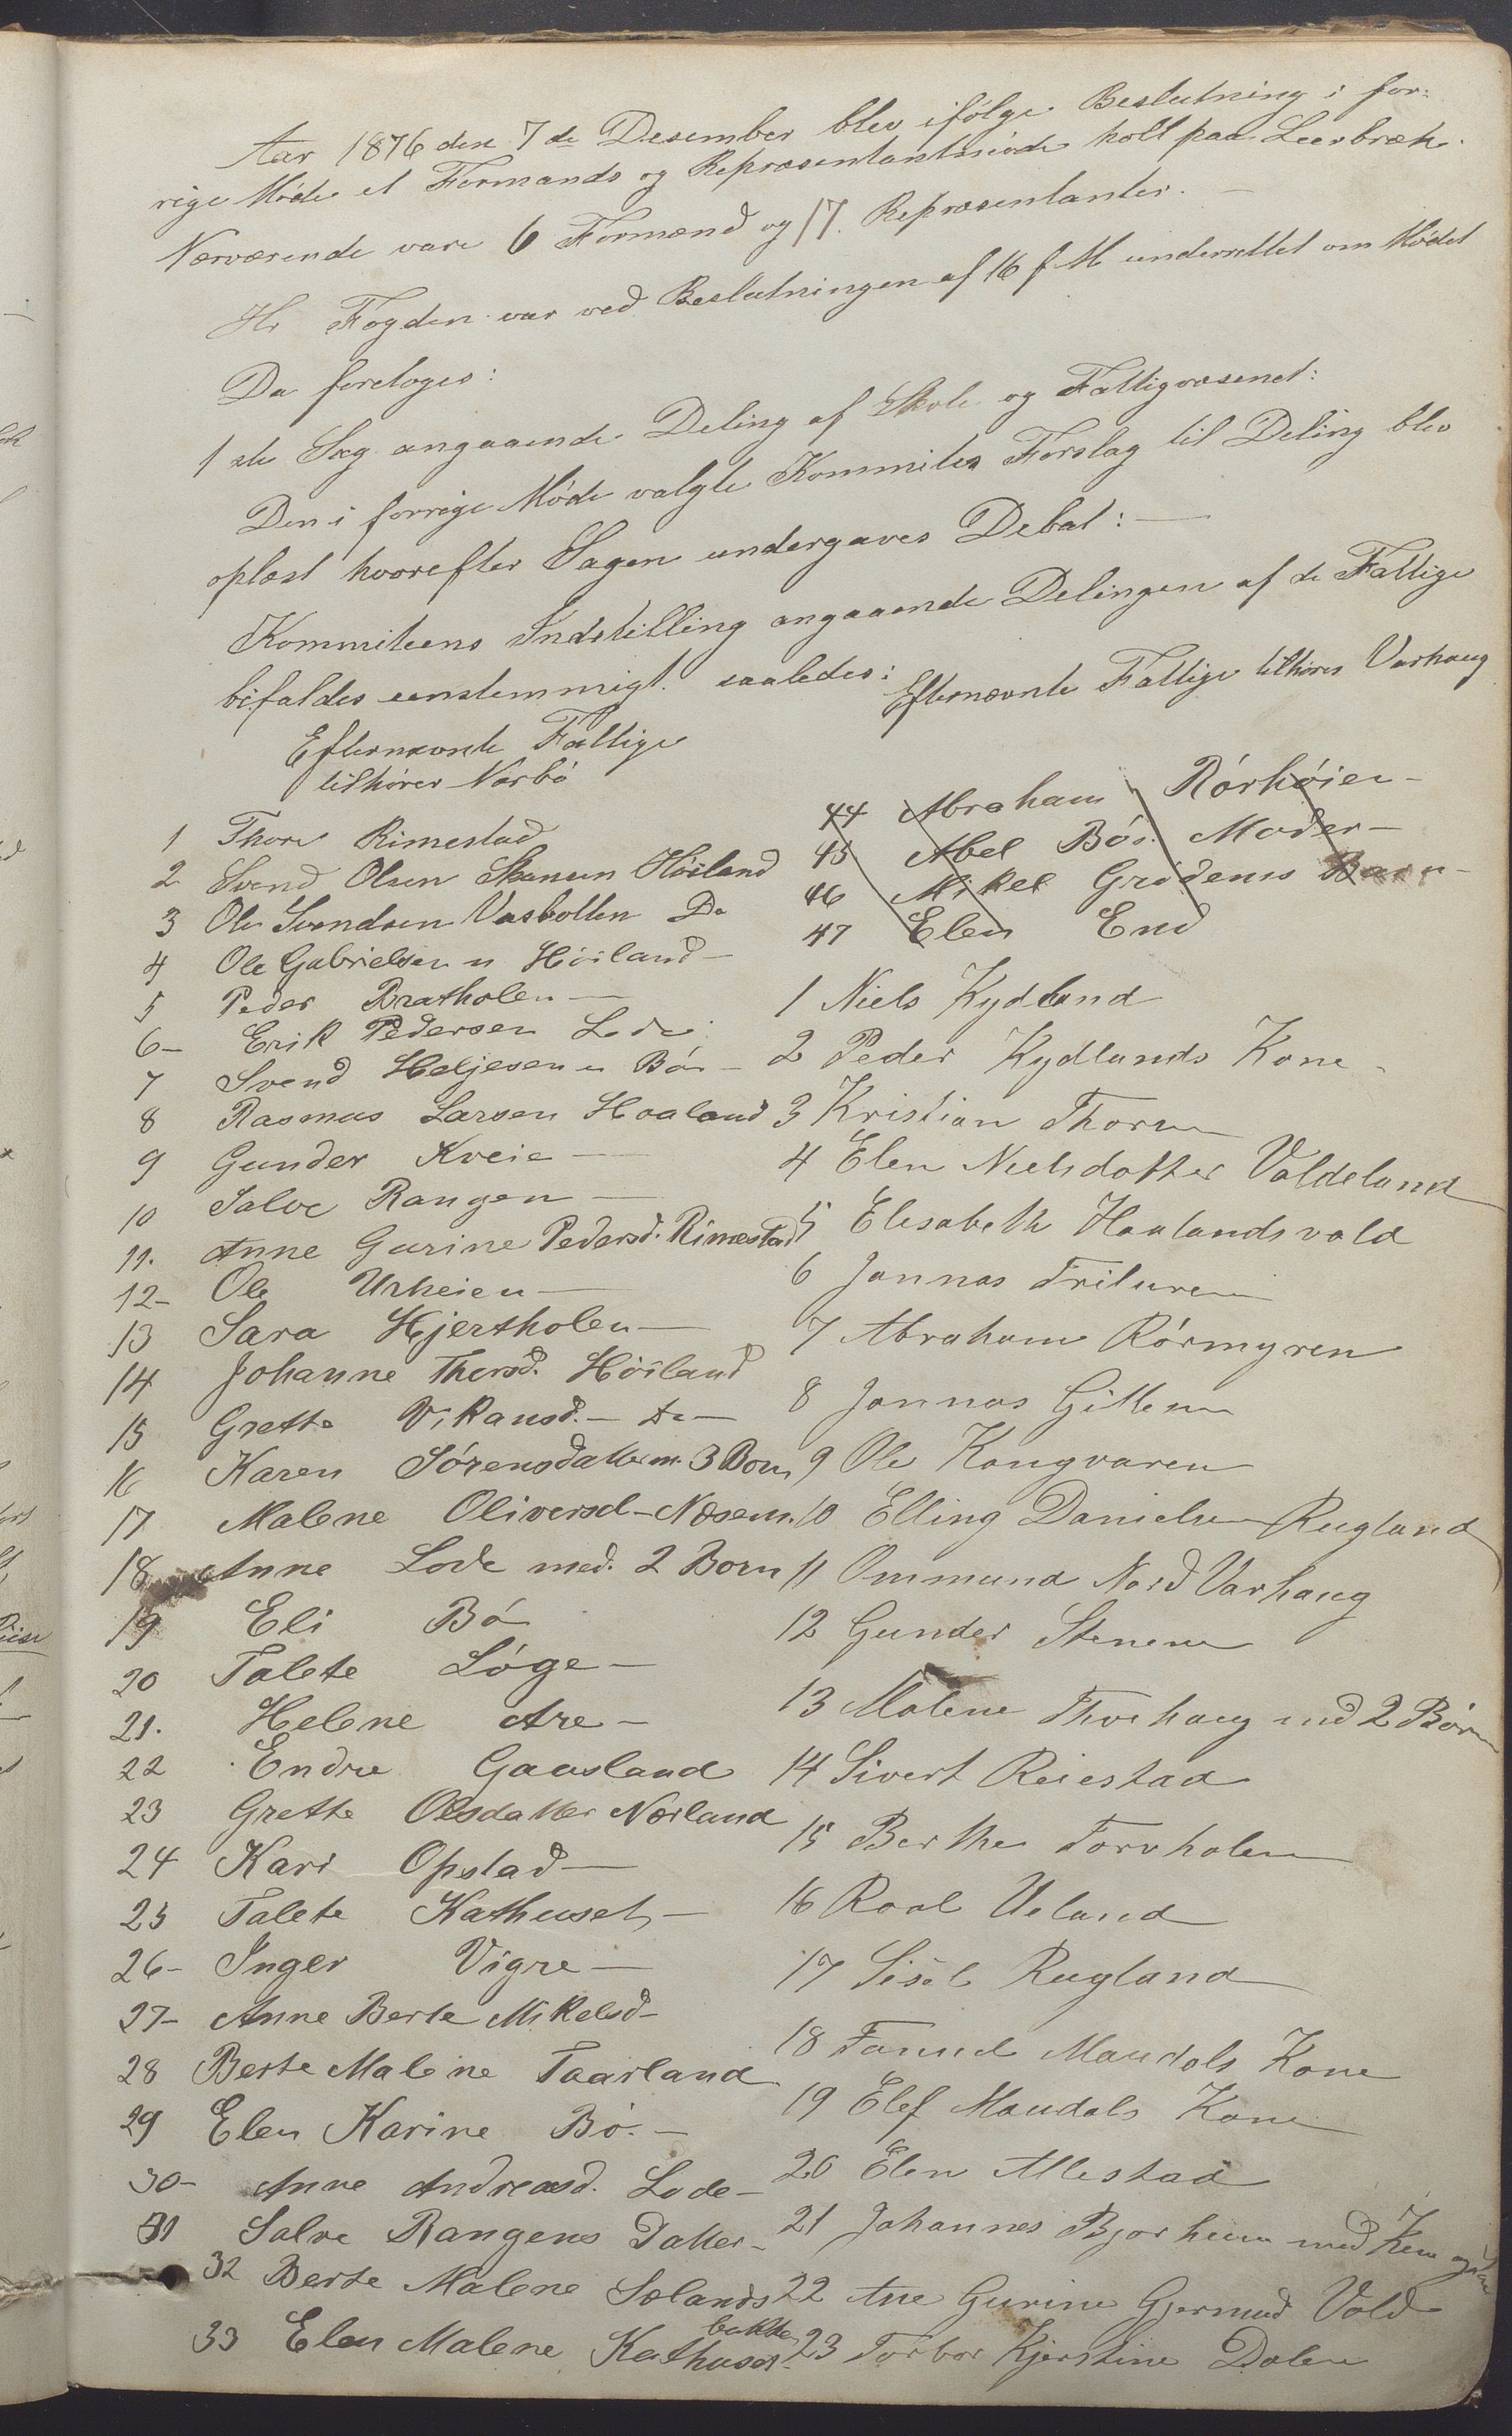 Aar 1876 den 7de Desember blev ifölge Beslutning i for-
rige Möde et Formands og Repræsentantmöde holt paa Leerbræk.
Nærværende vare 6 Formænd og 17 Repræsentanter. —
Hr Fogden var ved Beslutningen af 16 f M underrettet om Mödet
Da foretoges:
1ste Sag angaaende Deling af Skole og Fattigvæsenet:
Den i forrige Möde valgte Kommites Forslag til Deling blev
oplæst hvorefter Sagen undergaves Debat: —
Kommiteens Indstilling angaaende Delingen af de Fattige
bifaldes eenstemmigt saaledes:
Efternævnte Fattige
tilhörer Narbö
1 Thore Rimestad
2 Svend Olsen Skansen Höiland
3 Ole Svendsen Vasbotten Do
4 Ole Gabrielsen n Höiland —
5 Peder Bratholen —
6 — Erik Pedersen Lode
7 Svend Heljesen n Bö —
8 Rasmus Larsen Haaland
9 Gunder Kveie —
10 Salve Rangen —
11. Anne Gurine Pedersd. Rimestad
12 — Ole Urheien —
13 Sara Hjertholen —
14 Johanne Thorsd. Höiland
15 Grette Vikansd. — do —
16 Karen Sörensdatter m. 3 Born
17 Malene Oliversd — Næsem.
18 Anne Lode med. 2 Born
19 Eli Bö
20 Talete Löge —
21. Helene Are —
22 Endre Gausland
23 Grette Olesdatter Nærland
24 Kari Opstad —
25 Talete Kathuset —
26 — Inger Vigre —
27 — Anne Berte Mikelsd —
28 Berte Malene Taarland
29 Elen Karine Bö. —
30 — Anne Andreasd. Lode —
31 Salve Rangens Datter —
32 Berte Malene Sælands
bakke
33 Elen Malene Kathuset —
Efternævnte Fattige tilhörer Varhaug
44 Abraham Rörhöien —
45 Abel Bös Moder —
46 Mikel Grödems Barn —
47 Elen End
1 Niels Kydland
2 Peder Kydlands Kone
3 Kristian Thorsen
4 Elen Nielsdatter Voldeland
5 Elisabeth Haalandsvold
6 Jonnas Trituren
7 Abraham Rörmyren
8 Jonnas Gitlen
9 Ole Kongvaren
10 Elling Danielsen Rugland
11 Ommund Nord Varhaug
12 Gunder Stenen
13 Malene Thuehaug med 2 Börn
14 Sivert Reiestad
15 Berthe Torvholen
16 Roal Ueland
17 Sisel Rugland
18 Tonnel Maudals Kone
19 Elef Maudals Kone
20 Elen Allestad
21 Johannes Bjorheim med Kone og
22 Ane Gurine Gjermud Vold
23 Torbor Kjerstine Dalen